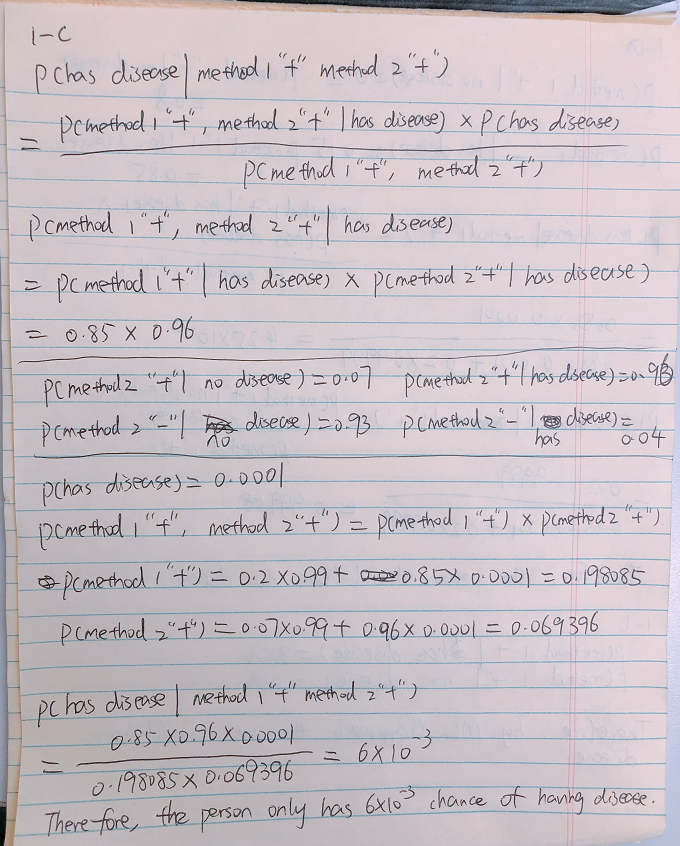 1-C
P(has disease | method 1 "+" method 2 "+")
= P(method 1 "+", method 2 "+" | has disease) × P(has disease)
P(method 1 "+", method 2 "+")
P(method 1 "+", method 2 "+" | has disease)
= P(method 1 "+" | has disease) × P(method 2 "+" | has disease)
= 0.85 × 0.96
P(method 2 "+" | no disease) = 0.07 P(method 2 "+" | has disease) = 0.96
P(method 2 "-" | no disease) = 0.93 P(method 2 "-" | has disease) = 0.04
P(has disease) = 0.0001
P(method 1 "+", method 2 "+") = P(method 1 "+") × P(method 2 "+")
P(method 1 "+") = 0.2 × 0.99 + 0.85 × 0.0001 = 0.198085
P(method 2 "+") = 0.07 × 0.99 + 0.96 × 0.0001 = 0.069396
P(has disease | method 1 "+" method 2 "+")
= 0.85 × 0.96 × 0.0001
0.198085 × 0.069396 = 6 × 10⁻³
Therefore, the person only has 6×10⁻³ chance of having disease.